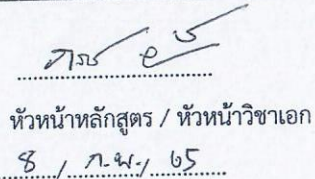 หัวหน้าหลักสูตร / หัวหน้าวิชาเอก
8 / ก.พ. / 65